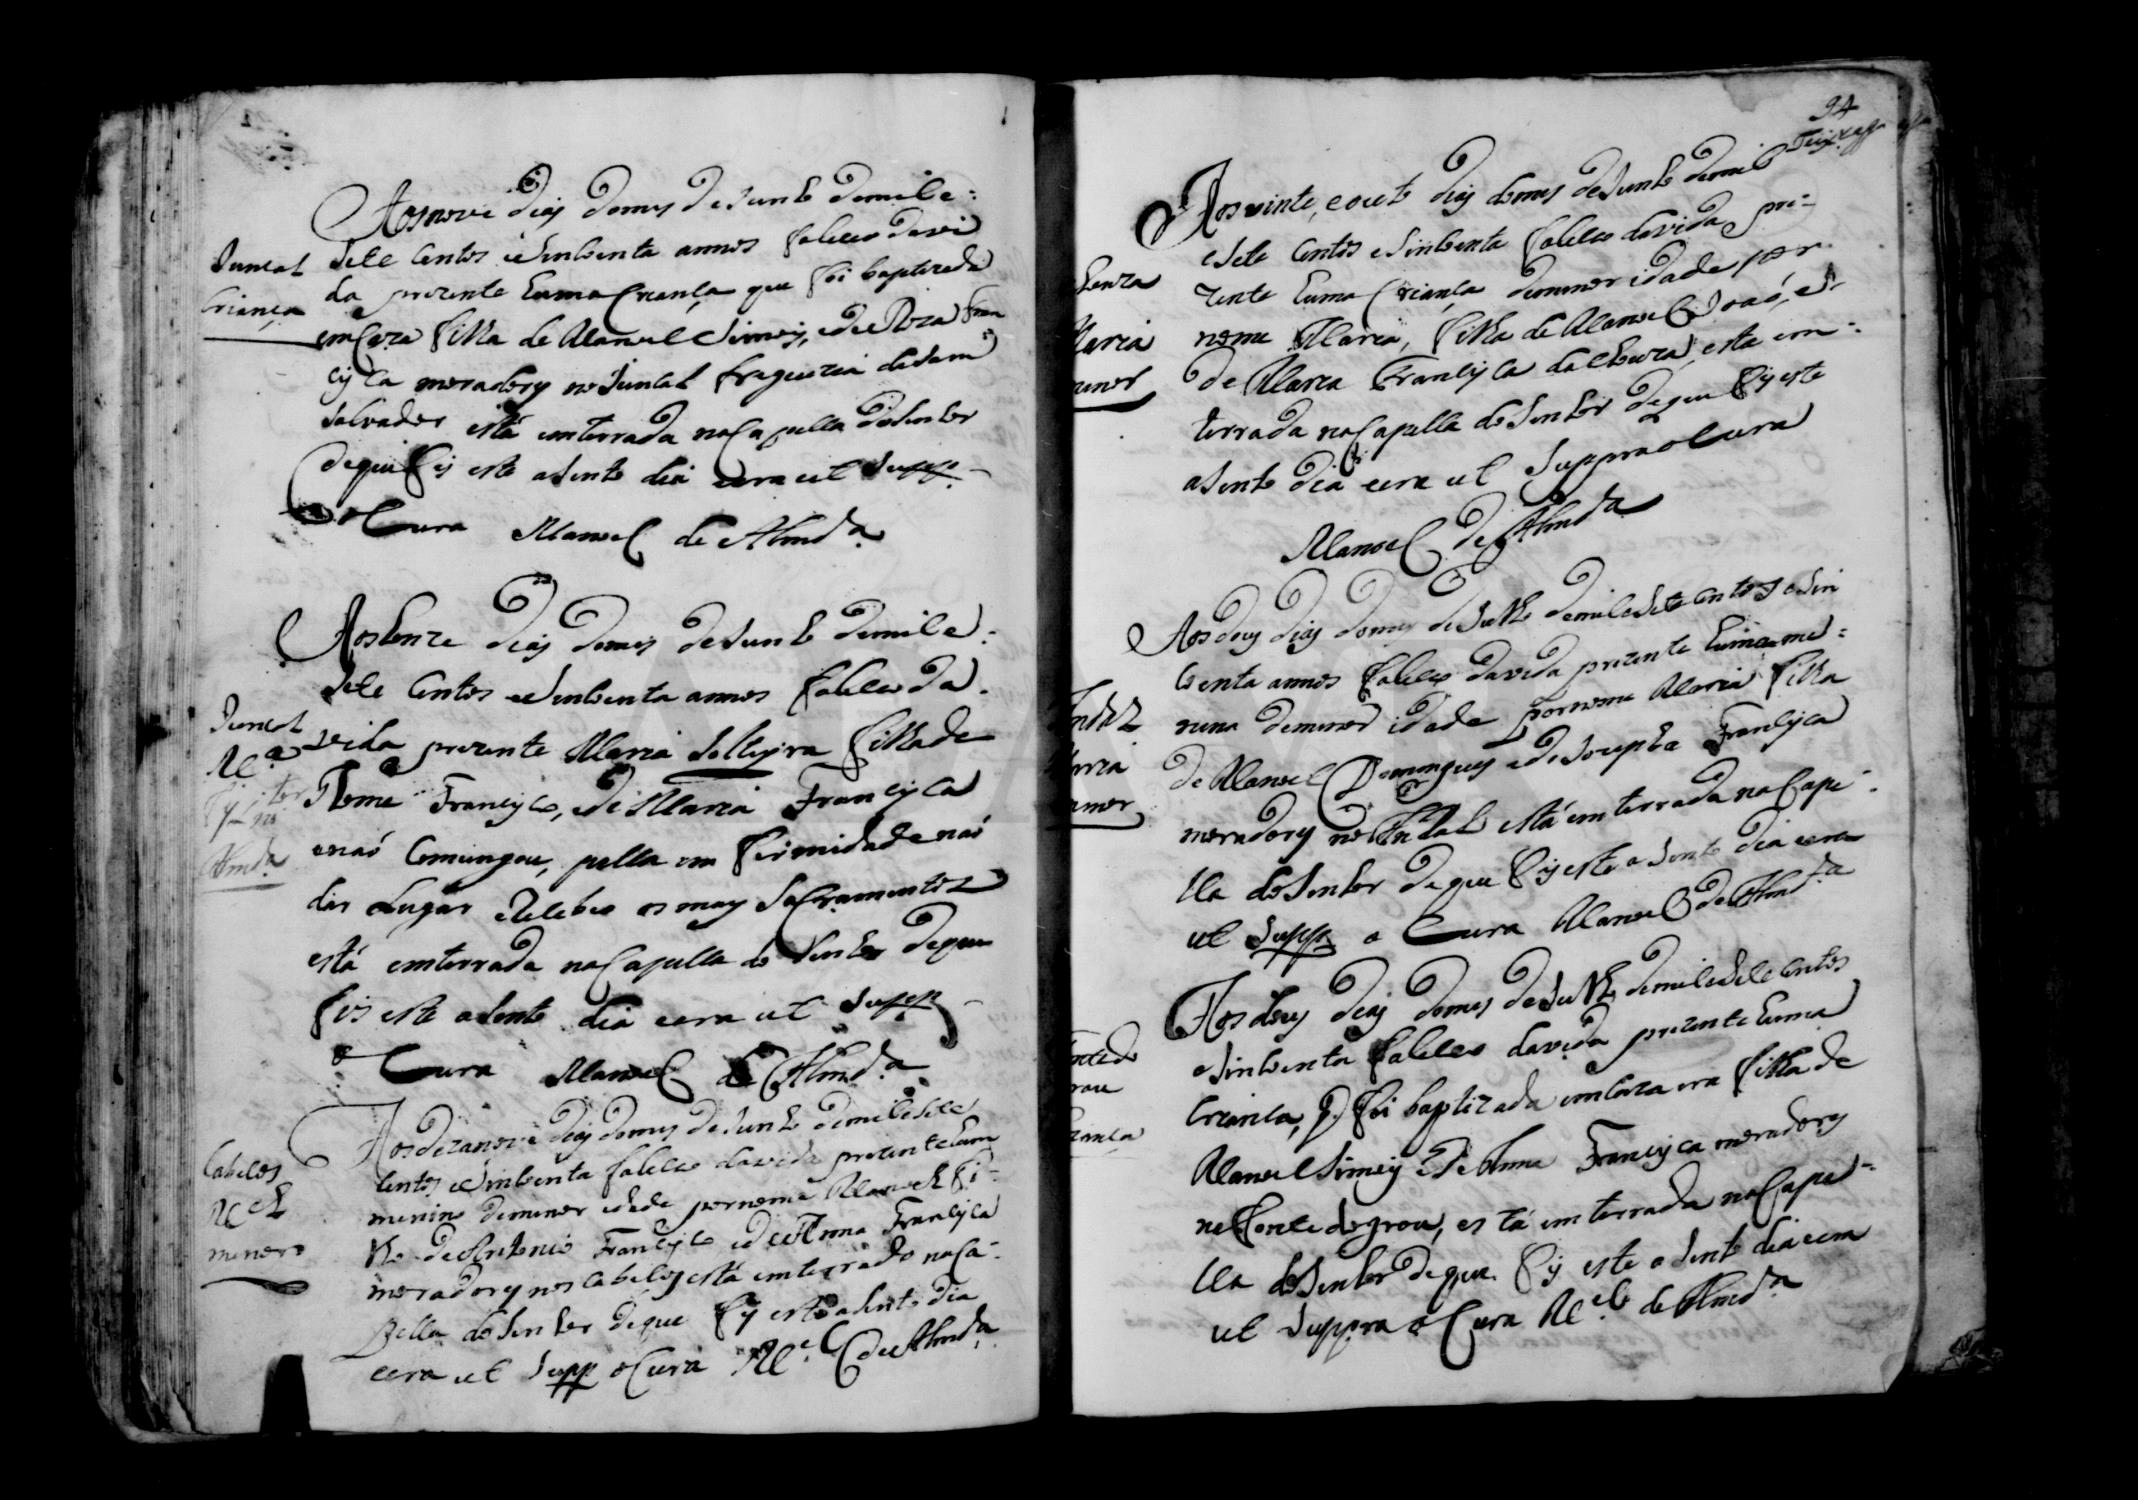 Juncal
Criança
Aos nove dias do mes de Junho de mil e
sete centos e sincoenta annos faleceo da vi
da prezente huma Criança que foi baptizada
em Caza filha de Manoel Simois, e de Roza Fran
cisca moradores no Juncal freguezia de Sam
Salvador está enterrada na Capella do Senhor
de que fis este asento dia era ut Supp
o Cura Manoel de Almda
Juncal
Ma
Almda
Aos honze dias do mes de Junho de mil e
sete centos e sincoenta annos faleceo da
vida prezente Maria Solteyra filha de
Thome Francisco, e de Maria Francisca
e naó Comungou, pella emfermidade naó
dar Lugar e Recebeo os mays Sacramentos
está emterrada na Capella do Senhor de que
fis este asento dia e era ut Supp
o Cura Manoel de Almda
Cabecos
Mel
menor
Aos dezanove dias do mes de Junho de mil e sete
centos e Sincoenta faleceo da vida prezente hum
menino de menor idade por nome Manoel fi
lho de Antonio Francisco e de Anna Francisca
moradores nos Cabecos está emterrado na Ca
pella do Senhor de que fis este asento dia
e era ut Supp o Cura Mel de Almda
94
Maria
menor
Aos vinte, e outo dias do mes de Junho de mil
e sete centos e sincoenta faleceo da vida pre
zente huma Criança de menor idade por
nome Maria, filha de Manoel Joaó, e
de Maria Francisca da Chouza, esta em
terrada na Capella do Senhor de que fis este
asento dia e era ut Suppra o Cura
Manoel de Almda
Maria
menor
Aos dous dias do mes de Julho de mil e sete centos e sin
coenta annos faleceo da vida prezente huma me
nina de menor idade por nome Maria filha
de Manoel Domingues e de Josepha Francisca
moradores no está emterrada na Cape
lla do Senhor de que fis este asento dia era
ut Supp o Cura Manoel de Almda
Aos dous dias do mes de Julho de mil e sete centos
e sincoenta faleceo da vida prezente huma
Crianca, q foi baptizada em Caza era filha de
Manoel Simois e de Anna Francisca moradores
na Fonte do grou, está emterrada na Cape
lla do Senhor de que fis este asento dia e era
ut Suppra o Cura Mel de Almda